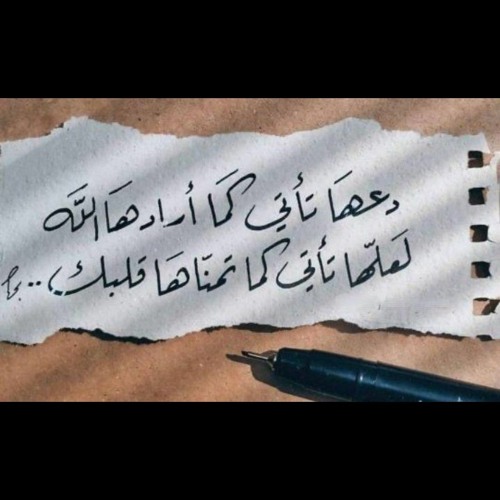 دعهَا تأتي كمَا أرادهَا اللَّه
لَعلّها تأتي كما تمنّاهَا قلبك ..